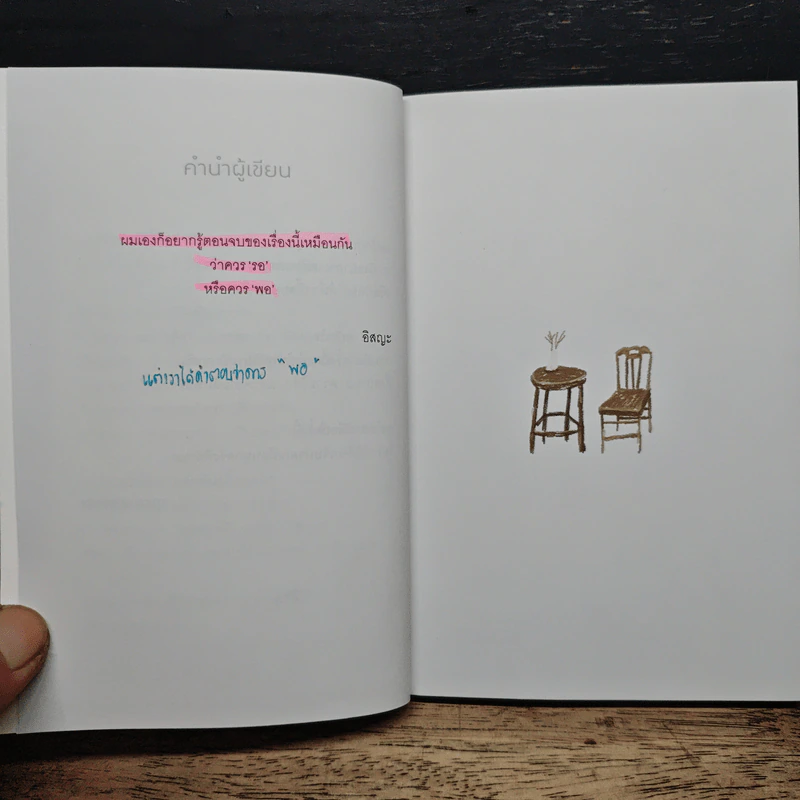 คำนำผู้เขียน
ผมเองก็อยากรู้ตอนจบของเรื่องนี้เหมือนกัน
ว่าควร 'รอ'
หรือควร 'พอ'
อิสญะ
แต่เราได้คำตอบว่าควร "พอ"